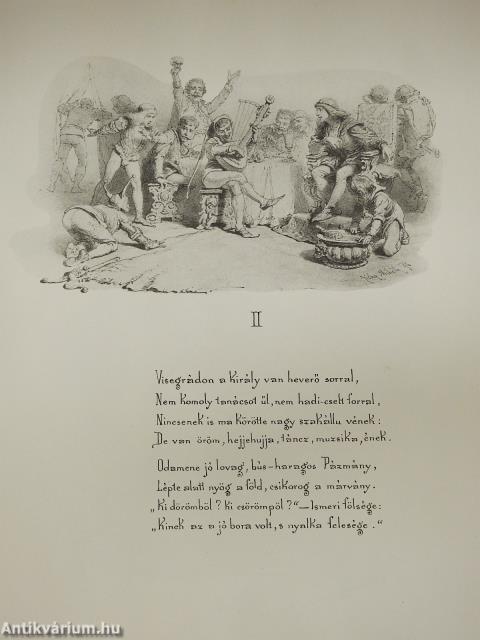 II
Visegrádon a király van heverő sorral,
Nem komoly tanácsot ül, nem hadi-cselt forral,
Nincsenek is ma körötte nagy szakállu vének:
De van öröm, hejjehujja, táncz, muzsika, ének.
Odamene jó lovag, bús-haragos Pázmány,
Lépte alatt nyög a föld, csikorog a márvány.
„Ki dörömböl? ki csörömpöl?" — Ismeri fölsége:
„Kinek az a jó bora volt, s nyalka felesége."
Antikvárium.hu